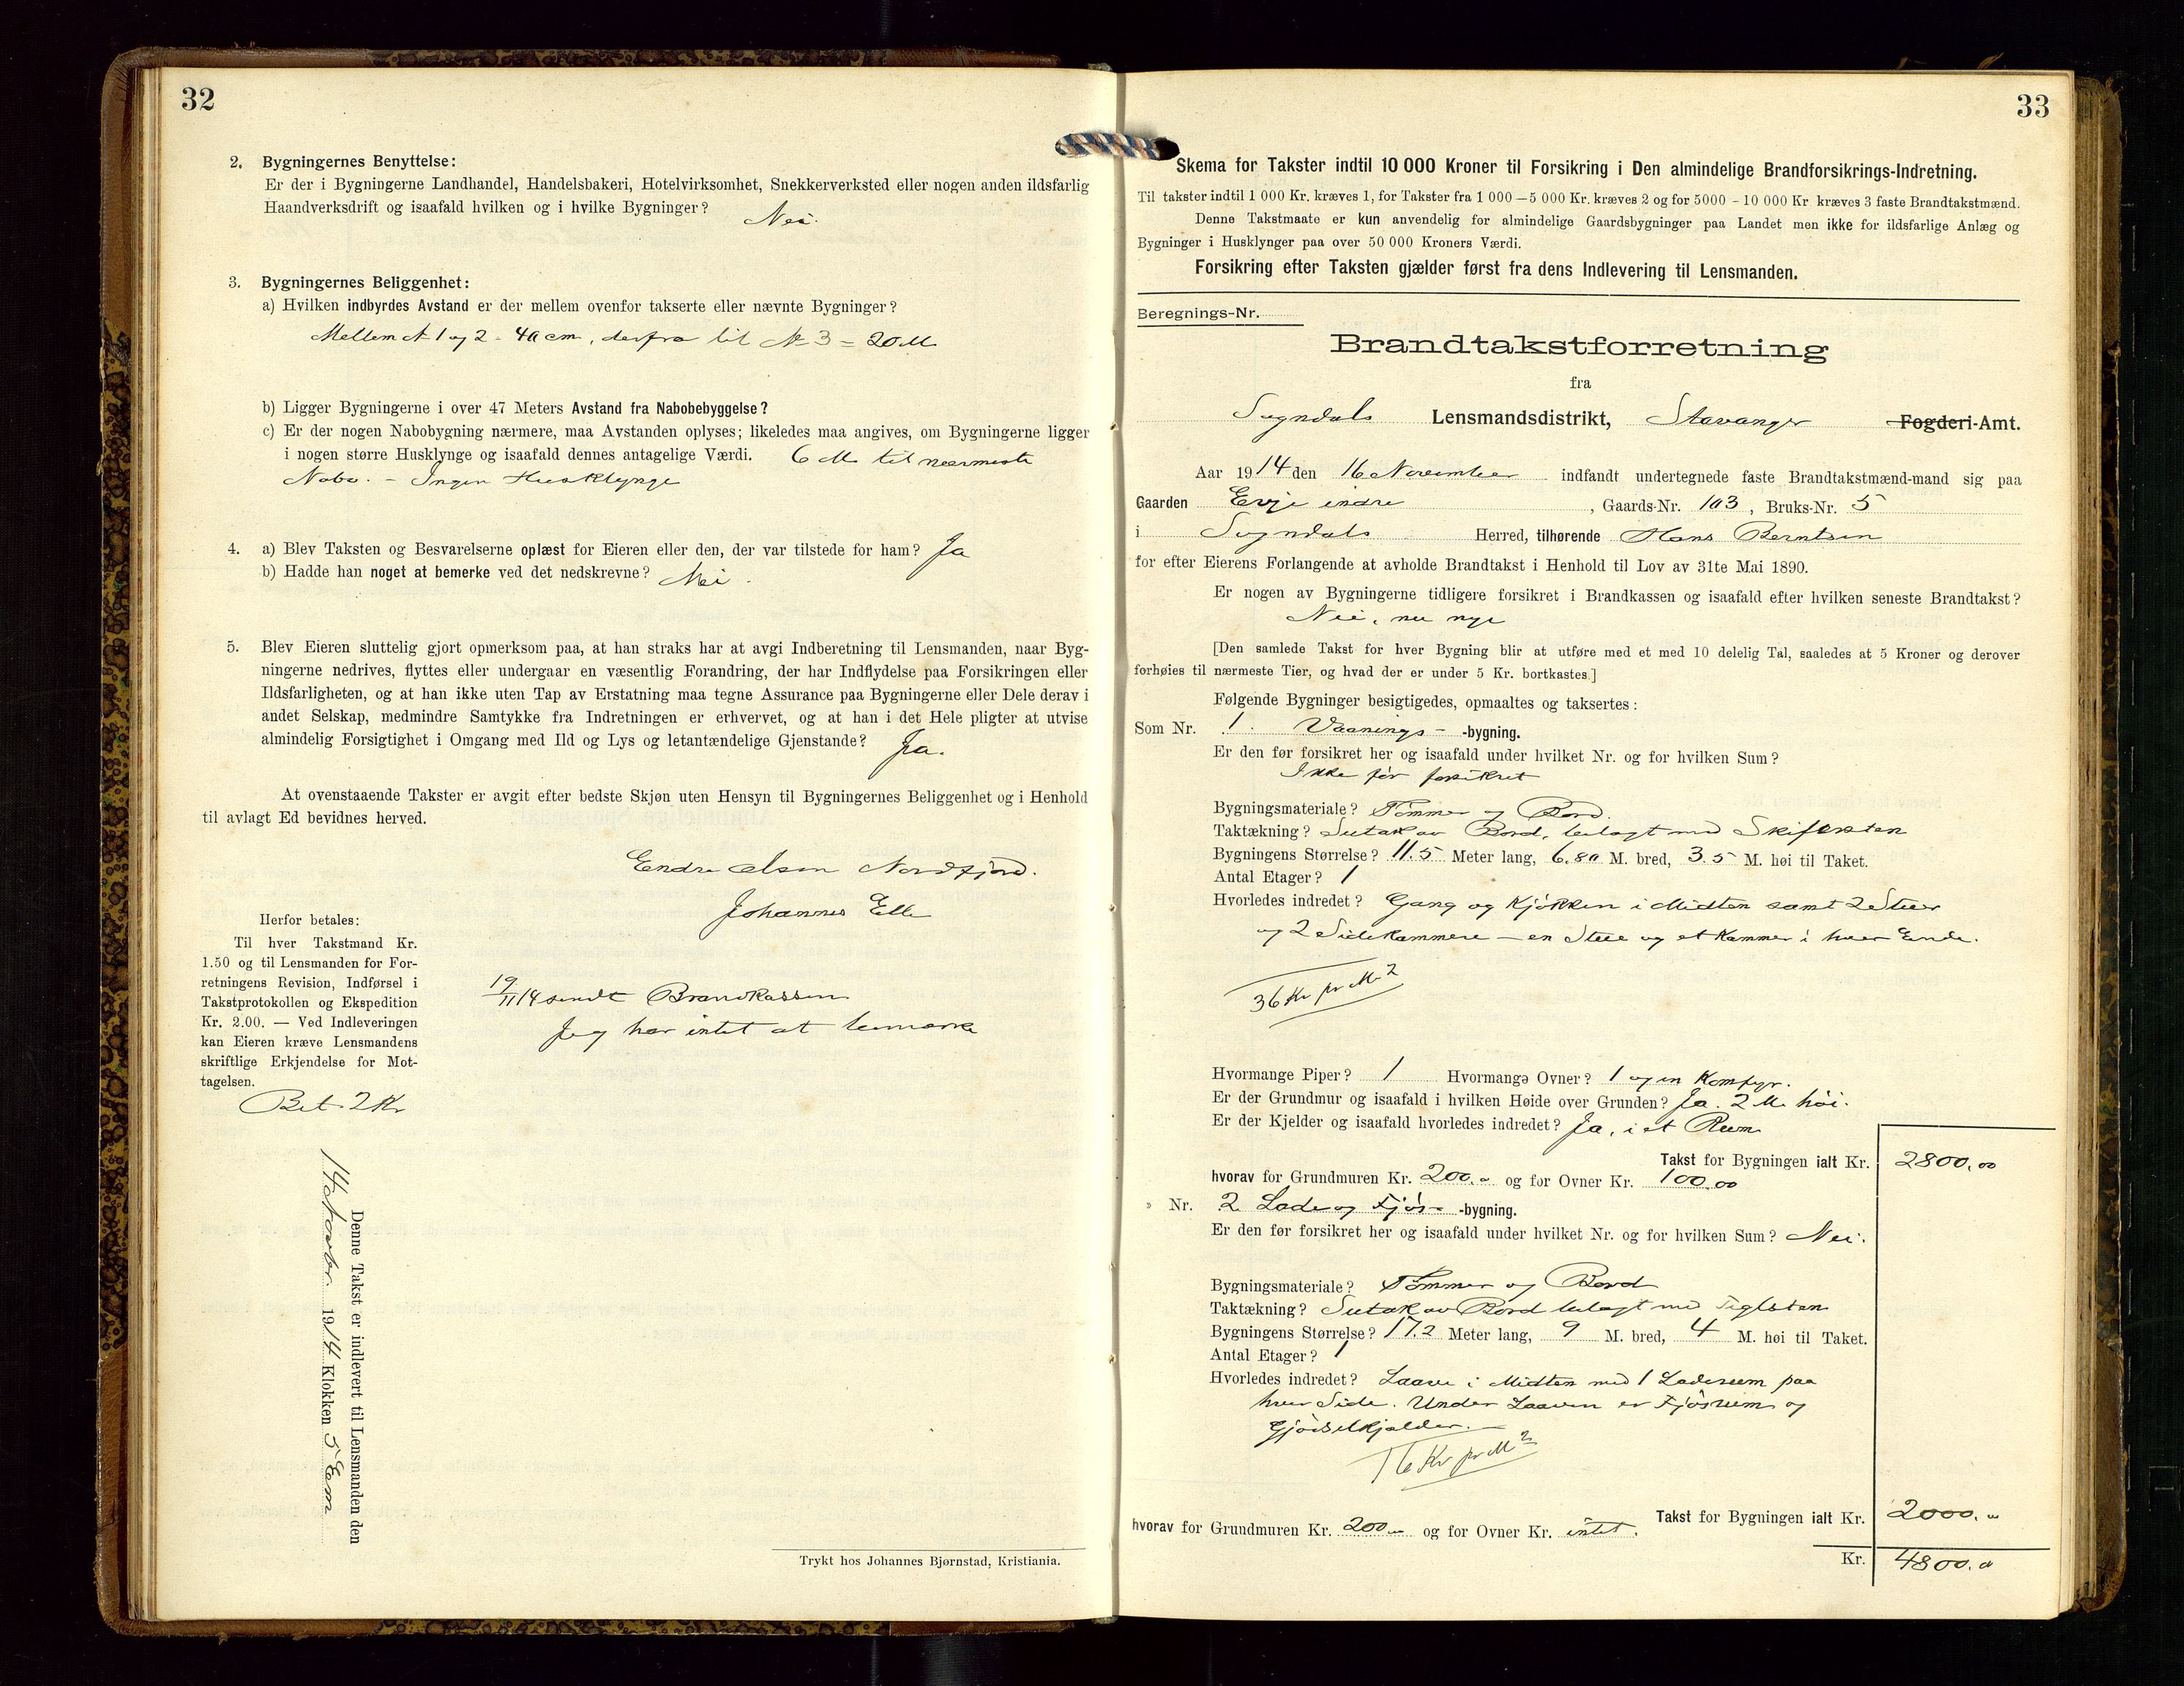 32
2. Bygningernes Benyttelse:
Er der i Bygningerne Landhandel, Handelsbakeri, Hotelvirksomhet, Snekkerverksted eller nogen anden ildsfarlig
Haandverksdrift og isaafald hvilken og i hvilke Bygninger? Nei.
3. Bygningernes Beliggenhet:
a) Hvilken indbyrdes Avstand er der mellem ovenfor takserte eller nævnte Bygninger?
Mellem № 1 og 2 = 40 cm, derfra til № 3 = 20 M
b) Ligger Bygningerne i over 47 Meters Avstand fra Nabobebyggelse?
c) Er der nogen Nabobygning nærmere, maa Avstanden oplyses; likeledes maa angives, om Bygningerne ligger
i nogen større Husklynge og isaafald dennes antagelige Værdi. 6 M til nærmeste
Nabo. - Ingen Husklynge
4. a) Blev Taksten og Besvarelserne oplæst for Eieren eller den, der var tilstede for ham? Ja
b) Hadde han noget at bemerke ved det nedskrevne? Nei.
5. Blev Eieren sluttelig gjort opmerksom paa, at han straks har at avgi Indberetning til Lensmanden, naar Byg-
ningerne nedrives, flyttes eller undergaar en væsentlig Forandring, der har Indflydelse paa Forsikringen eller
Ildsfarligheten, og at han ikke uten Tap av Erstatning maa tegne Assurance paa Bygningerne eller Dele derav i
andet Selskap, medmindre Samtykke fra Indretningen er erhvervet, og at han i det Hele pligter at utvise
almindelig Forsigtighet i Omgang med Ild og Lys og letantændelige Gjenstande? Ja.
At ovenstaaende Takster er avgit efter bedste Skjøn uten Hensyn til Bygningernes Beliggenhet og i Henhold
til avlagt Ed bevidnes herved.
Endre Olsen Nordfjord.
Johannes Elle
Herfor betales:
Til hver Takstmand Kr.
1.50 og til Lensmanden for For-
retningens Revision, Indførsel i
Takstprotokollen og Ekspedition
Kr. 2.00. — Ved Indleveringen
kan Eieren kræve Lensmandens
skriftlige Erkjendelse for Mot-
tagelsen.
Bet. 2 Kr
19/11 14 sendt Brandkassen
Jeg har intet at bemerke
Denne Takst er indlevert til Lensmanden den
14 1914 Klokken 5 Em
Trykt hos Johannes Bjørnstad, Kristiania.
33
Skema for Takster indtil 10 000 Kroner til Forsikring i Den almindelige Brandforsikrings-Indretning.
Til takster indtil 1 000 Kr. kræves 1, for Takster fra 1 000—5 000 Kr. kræves 2 og for 5000 - 10 000 Kr kræves 3 faste Brandtakstmænd.
Denne Takstmaate er kun anvendelig for almindelige Gaardsbygninger paa Landet men ikke for ildsfarlige Anlæg og
Bygninger i Husklynger paa over 50 000 Kroners Værdi.
Forsikring efter Taksten gjælder først fra dens Indlevering til Lensmanden.
Beregnings-Nr.
Brandtakstforretning
fra
Sogndals Lensmandsdistrikt, Stavanger Fogderi-Amt.
Aar 1914 den 16 November indfandt undertegnede faste Brandtakstmænd-mand sig paa
Gaarden Evje indre, Gaards-Nr. 103, Bruks-Nr. 5
i Sogndals Herred, tilhørende Hans Berntsen
for efter Eierens Forlangende at avholde Brandtakst i Henhold til Lov av 31te Mai 1890.
Er nogen av Bygningerne tidligere forsikret i Brandkassen og isaafald efter hvilken seneste Brandtakst?
Nei, nye
[Den samlede Takst for hver Bygning blir at utføre med et med 10 delelig Tal, saaledes at 5 Kroner og derover
forhøies til nærmeste Tier, og hvad der er under 5 Kr. bortkastes.]
Følgende Bygninger besigtigedes, opmaaltes og taksertes:
Som Nr. 1. Vaanings- -bygning.
Er den før forsikret her og isaafald under hvilket Nr. og for hvilken Sum?
Ikke før forsikret
Bygningsmateriale? Tømmer og Bord.
Taktækning? Sutak av Bord, belagt med Skifersten
Bygningens Størrelse? 11.5 Meter lang, 6.80 M. bred, 3.5 M. høi til Taket.
Antal Etager? 1
Hvorledes indredet? Gang og Kjøkken i Midten samt 2 Stuer
og 2 Sidekammere — en Stue og et Kammer i hver Ende.
36 Kr pr M²
Hvormange Piper? 1 Hvormange Ovner? 1 og en Komfyr.
Er der Grundmur og isaafald i hvilken Høide over Grunden? Ja. 2 M. høi.
Er der Kjelder og isaafald hvorledes indredet? Ja, i et Rum
Takst for Bygningen ialt Kr. 2800,00
hvorav for Grundmuren Kr. 200.00 og for Ovner Kr. 100.00
» Nr. 2 Lade og Fjøs- -bygning.
Er den før forsikret her og isaafald under hvilket Nr. og for hvilken Sum? Nei.
Bygningsmateriale? Tømmer og Bord
Taktækning? Sutak av Bord belagt med Teglsten
Bygningens Størrelse? 17.2 Meter lang, 9 M. bred, 4 M. høi til Taket.
Antal Etager? 1
Hvorledes indredet? Laave i Midten med 1 Laderum paa
hver Side. Under Laaven er Fjøsrum og
Gjødselkjælder.
16 Kr pr M²
Takst for Bygningen ialt Kr. 2000.00
hvorav for Grundmuren Kr. 200.00 og for Ovner Kr. intet.
Kr. 4800.00